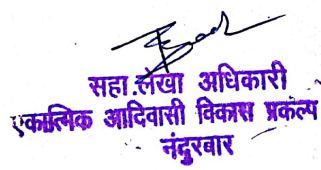 सहा.लेखा अधिकारी
एकात्मिक आदिवासी विकास प्रकल्प
नंदुरबार